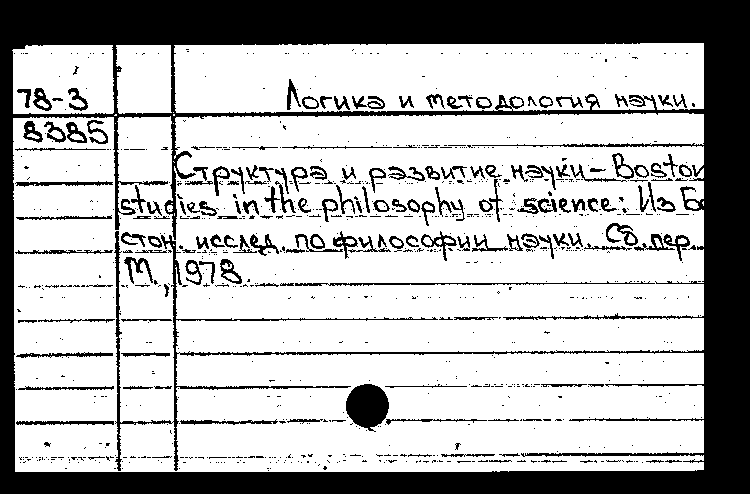 78-3 Логика и методология науки.
8385
Структура и развитие науки – Boston
studies in the philosophy of science: Из Бо
стон. исслед. по философии науки. Сб. пер.
М., 1978.